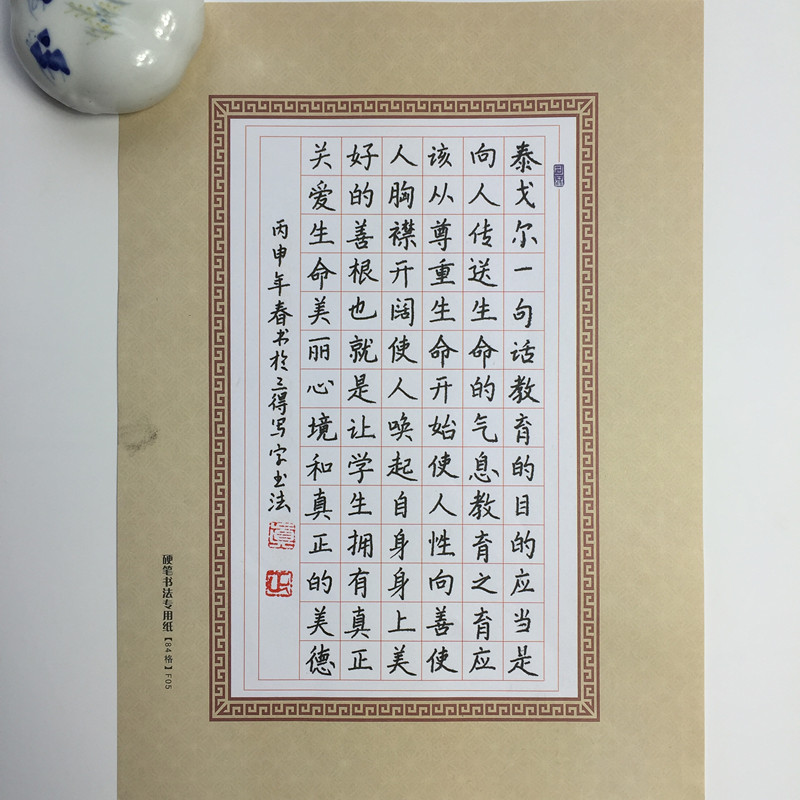 泰戈尔一句话教育的目的应当是
向人传送生命的气息教育之育应
该从尊重生命开始使人性向善使
人胸襟开阔使人唤起自身身上美
好的善根也就是让学生拥有真正
关爱生命美丽心境和真正的美德
丙申年春书於三得写字书法
硬笔书法专用纸【84格】F05